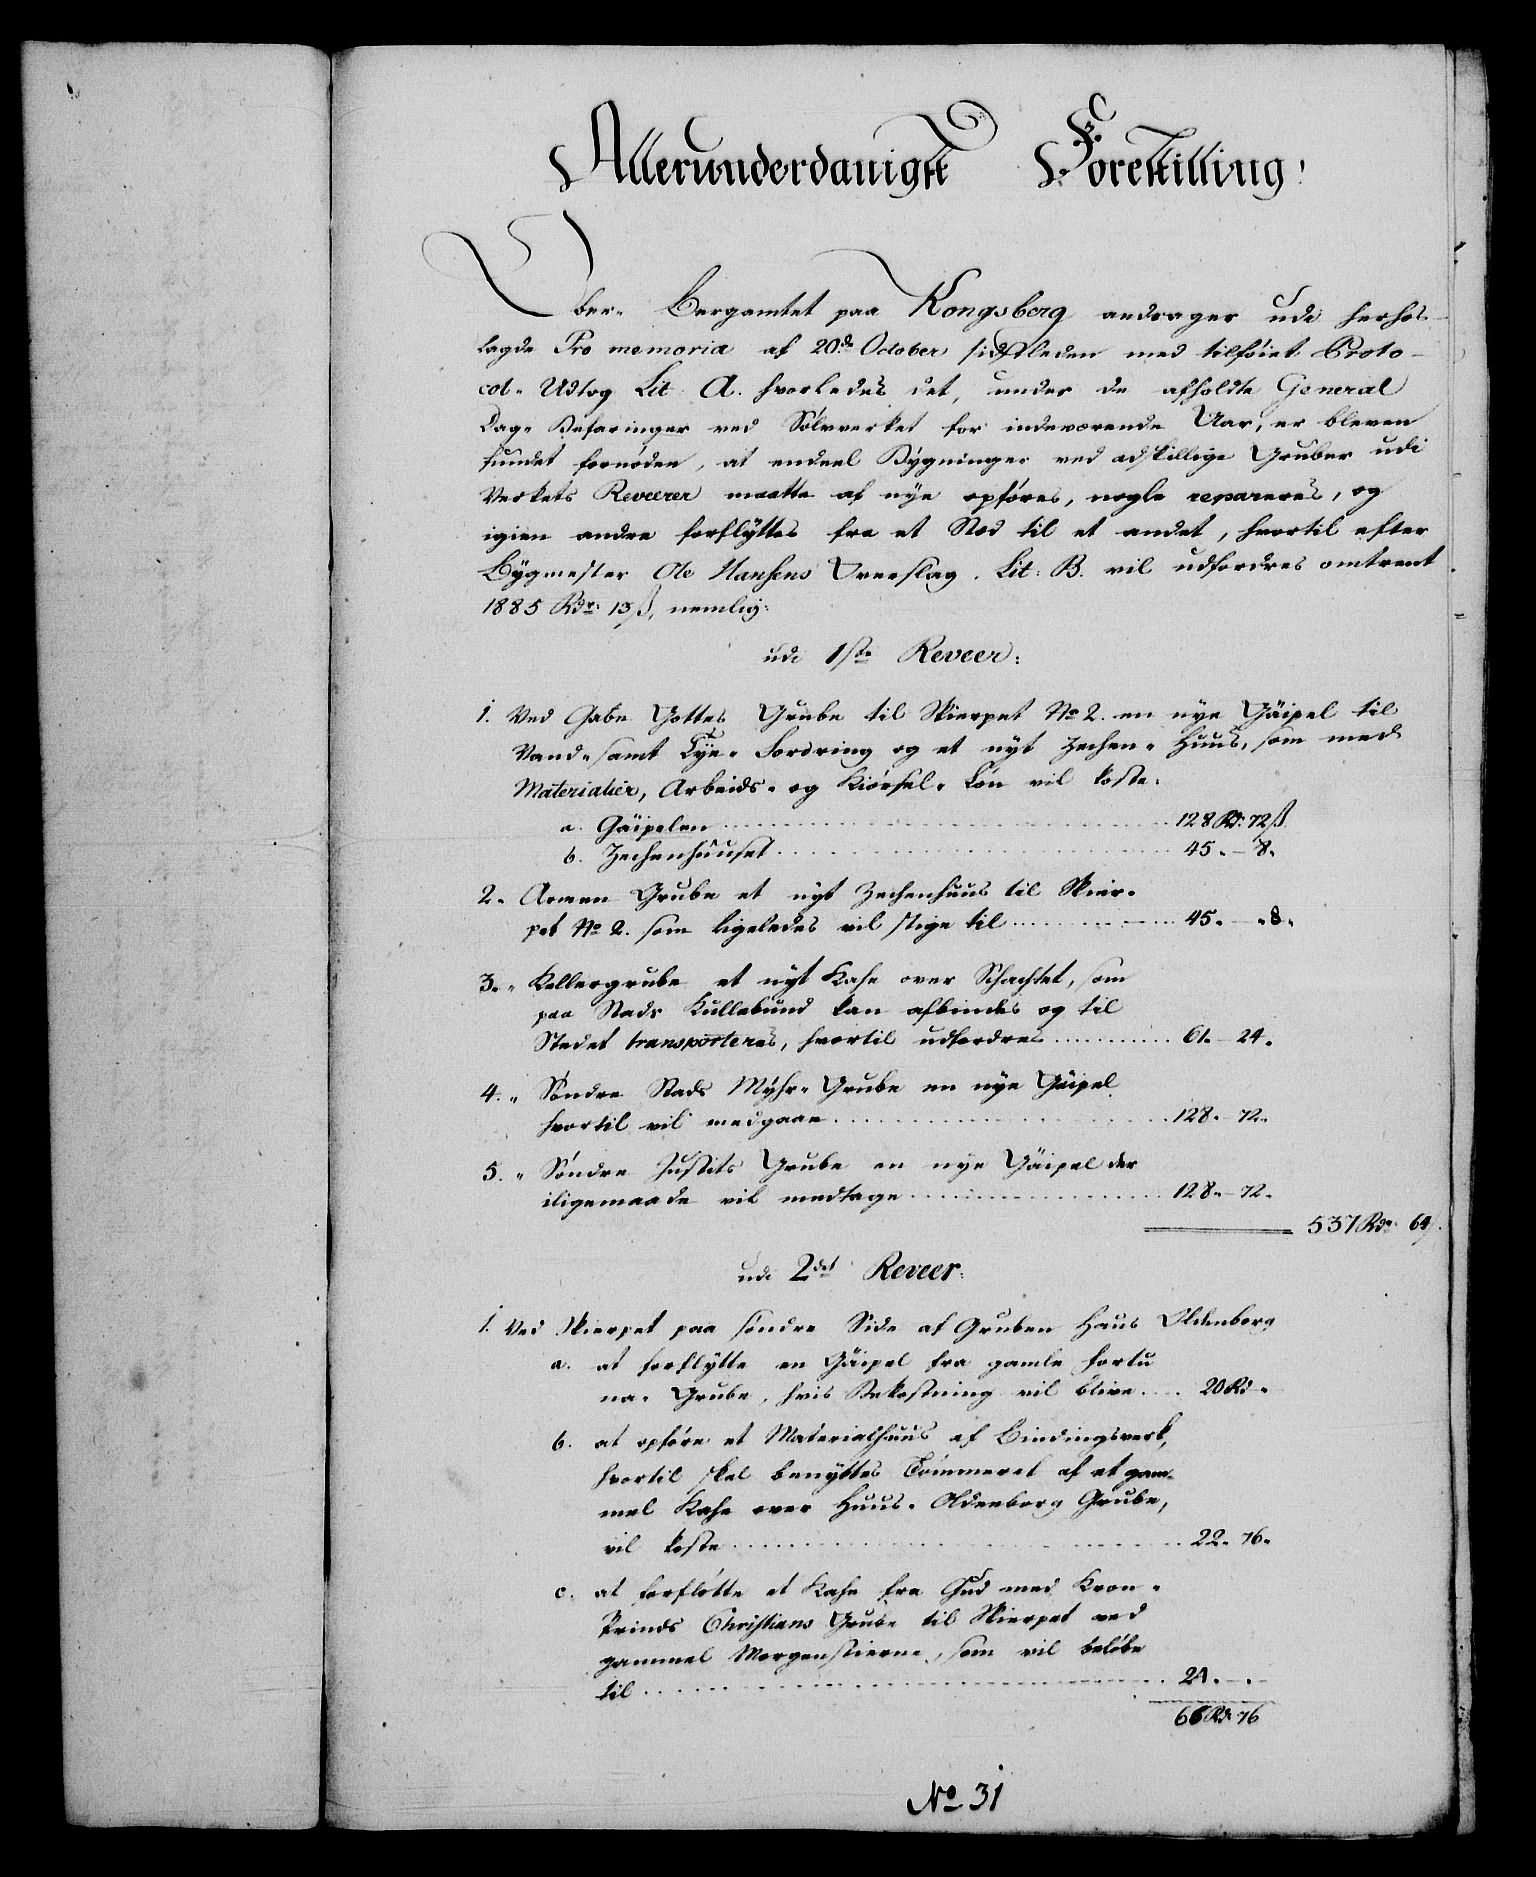 Allerunderdanigst Forestilling!
Ober- Bergamtet paa Kongsberg andrager udi herhos-
lagde Pro memoria af 20de October sidstleden med tilføiet Proto-
col- Udtog Lit A. hvorledes det, under de afholdte General
Dag- Befaringer ved Sølvverket for indeværende Aar, er bleven
fundet fornøden, at endeel Bygninger ved adskillige Gruber udi
Verkets Reveerer maatte af nye opføres, nogle repareres, og
igien andre forflyttes fra et Sted til et andet, hvortil efter
Bygmester Ole Hansens Overslag. Lit: B. vil udfordres omtrent
1885 Rdr: 13 ß, nemlig:
udi 1ste Reveer:
1. Ved Gabe Gottes Grube til Skierpet No 2. en nye Gäipel til
Vand- samt Tye- Fordring og et nyt Zechen- Huus, som med
Materialier, Arbeids- og Kiørsel- Løn vil koste:
a. Gäipelen ... 128 Rd: 72 ß
b. Zechenhuuset ... 45. - 8.
2. Armen Grube et nyt Zechenhuus til Skier-
pet No 2. som ligeledes vil stige til ... 45. - 8.
3. " Kellergrube et nyt Kahe over Schachtet, som
paa Stads Kullebund kan afbindes og til
Stedet transporteres, hvortil udfordres ... 61. - 24.
4. " Søndre Stads Myhr- Grube en nye Gäipel
hvortil vil medgaae ... 128. - 72.
5. " Søndre Justits Grube en nye Gäipel der
iligemaade vil medtage ... 128. - 72.
537 Rdr 64.
udi 2det Reveer:
1. Ved Skierpet paa søndre Side af Gruben Haus Oldenborg
a. at forflytte en Gäipel fra gamle Fortu
na- Grube, hvis Bekostning vil blive ... 20 Rd -
b. at opføre et Materialhuus af Bindingsverk,
hvortil skal benyttes Tømmeret af et gam-
mel Kahe over Huus- Oldenborg Grube,
vil koste ... 22. 76.
c. at forflötte et Kahe fra Gud med Kron-
Prinds Christians Grube til Skierpet ved
gammel Morgenstierne, som vil beløbe
til ... 24. -.
66 Rd 76
No 31